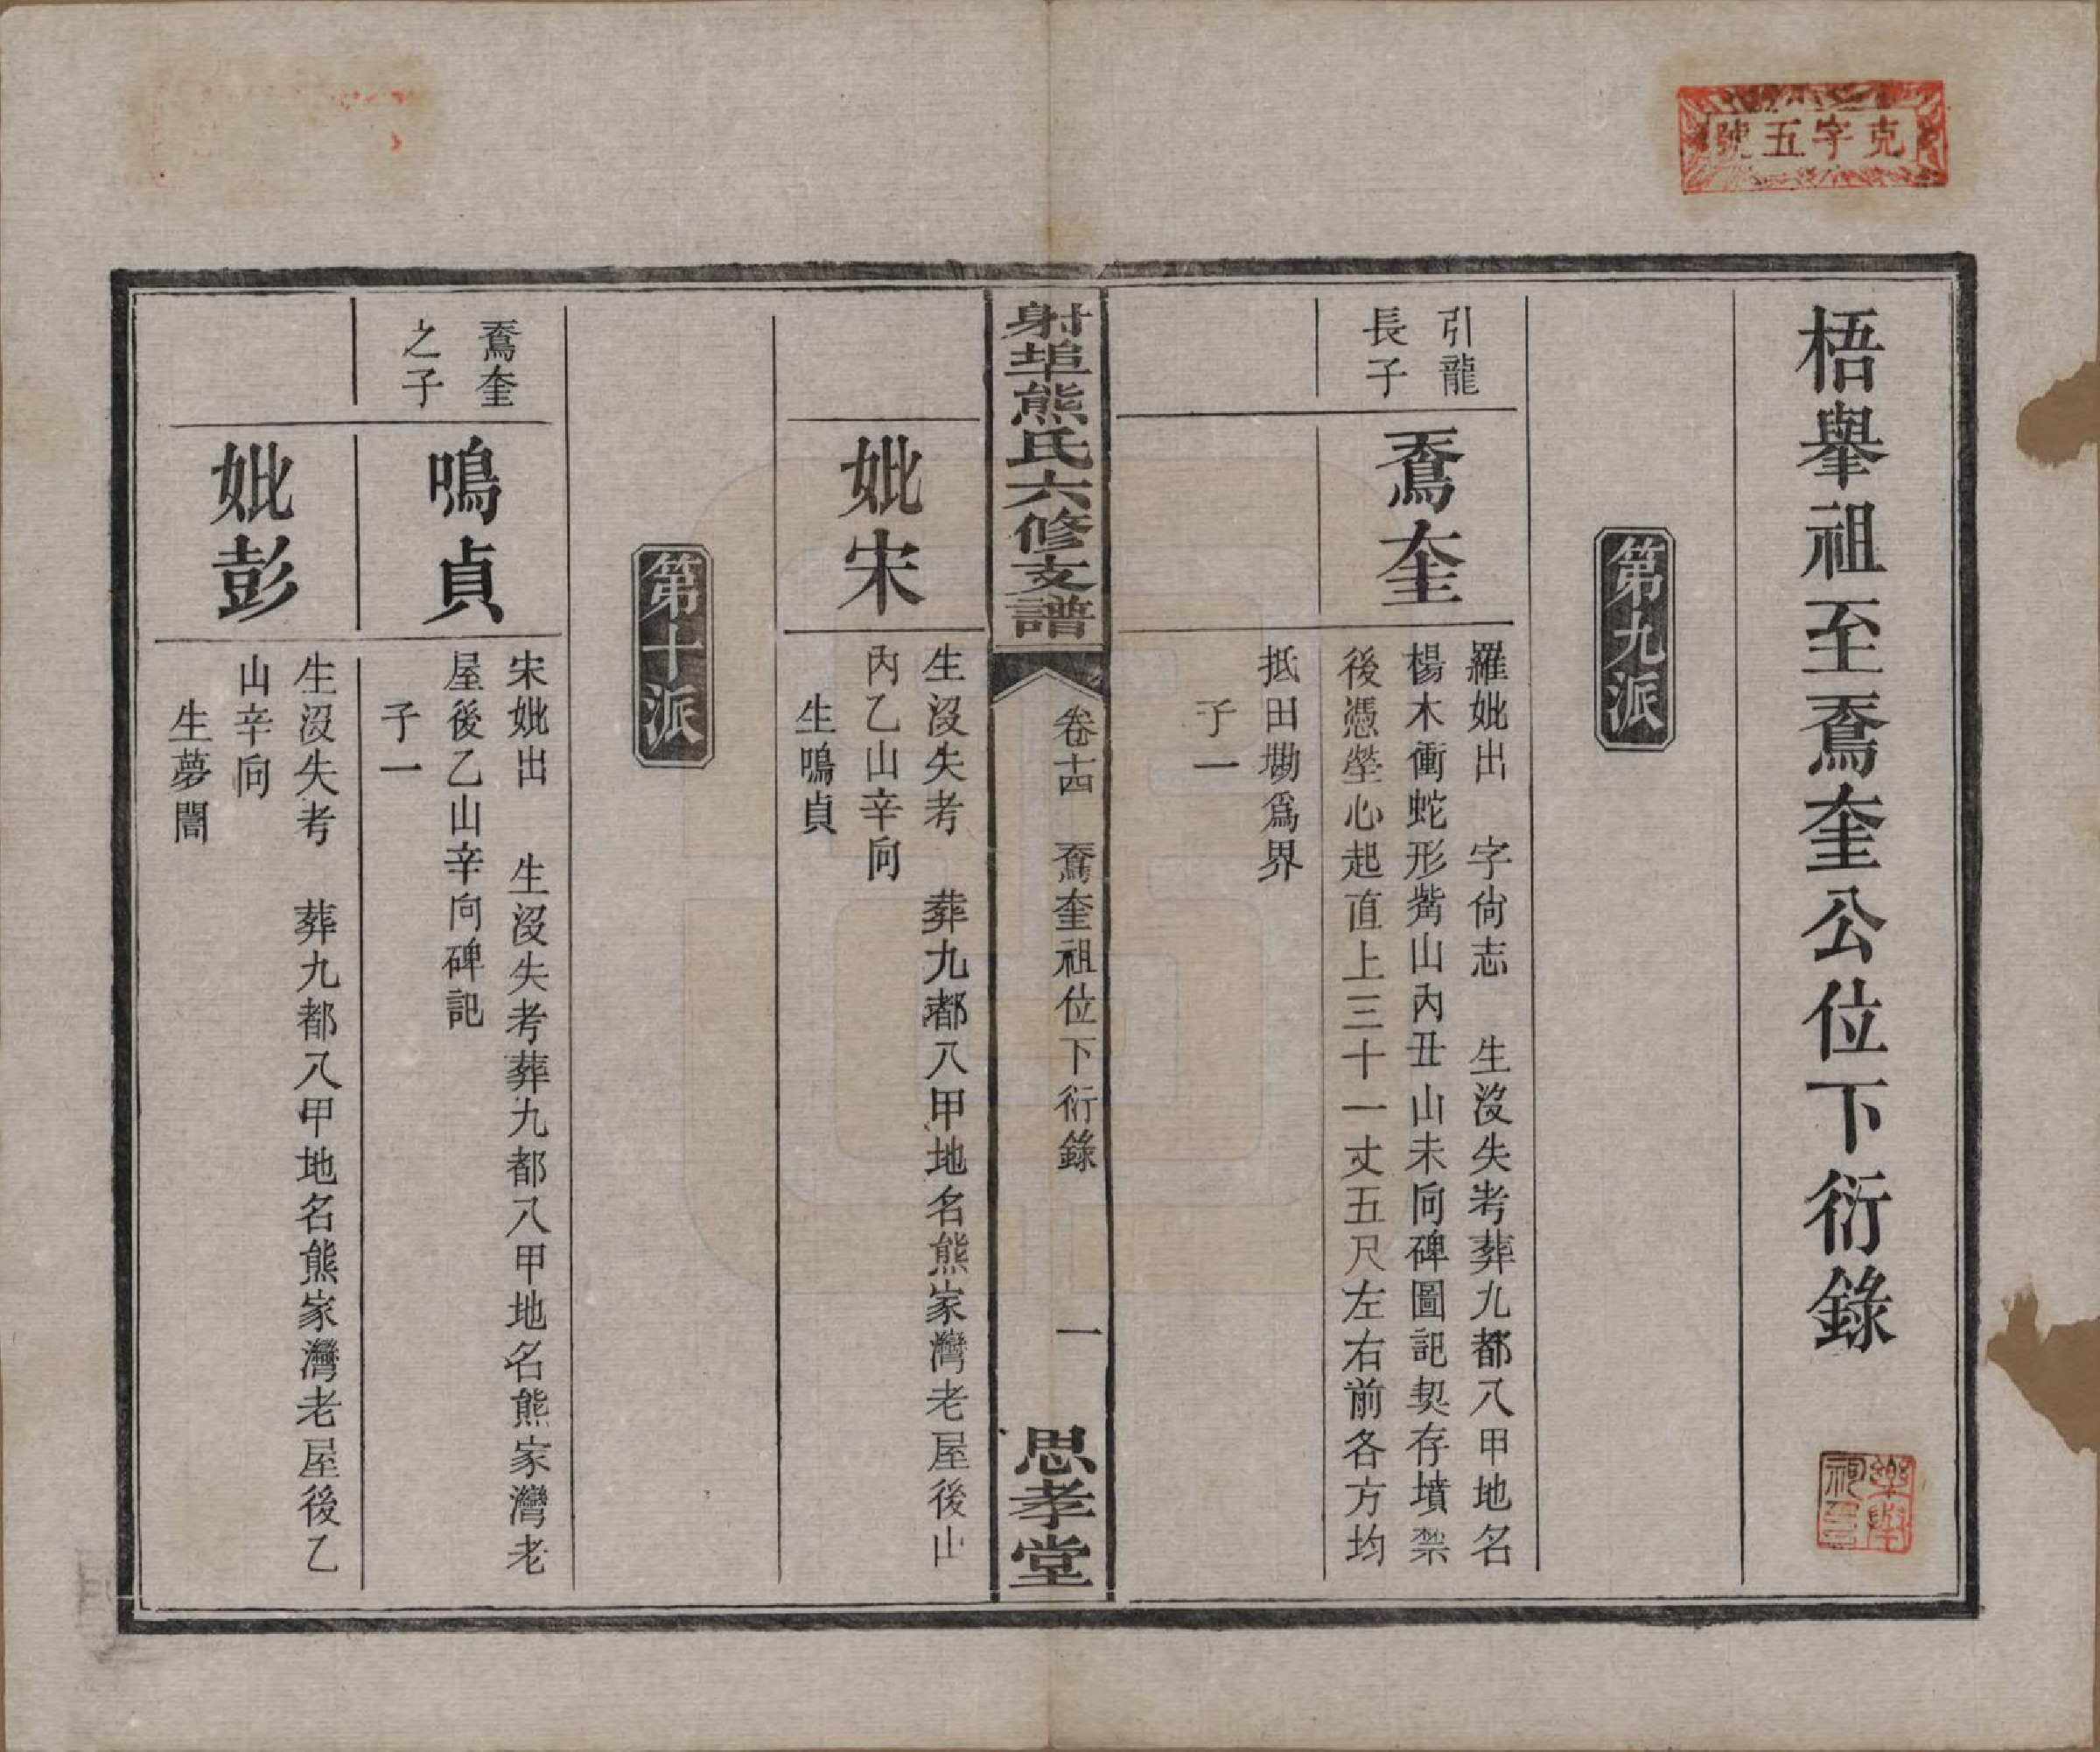 克字五號
梧舉祖至鴌奎公位下衍錄
第九派
引龍
長子
鴌奎
羅妣出　字尙志　生沒失考葬九都八甲地名
楊木衝蛇形觜山內丑山未向碑圖記契存墳禁
後憑塋心起直上三十一丈五尺左右前各方均
抵田墈爲界
子一
射埠熊氏六修支譜
卷十四　鴌奎祖位下衍錄　一
思孝堂
妣宋
生沒失考　葬九都八甲地名熊家灣老屋後山
內乙山辛向
生鳴貞
第十派
鴌奎
之子
鳴貞
宋妣出　生沒失考葬九都八甲地名熊家灣老
屋後乙山辛向碑記
子一
妣彭
生沒失考　葬九都八甲地名熊家灣老屋後乙
山辛向
生夢誾